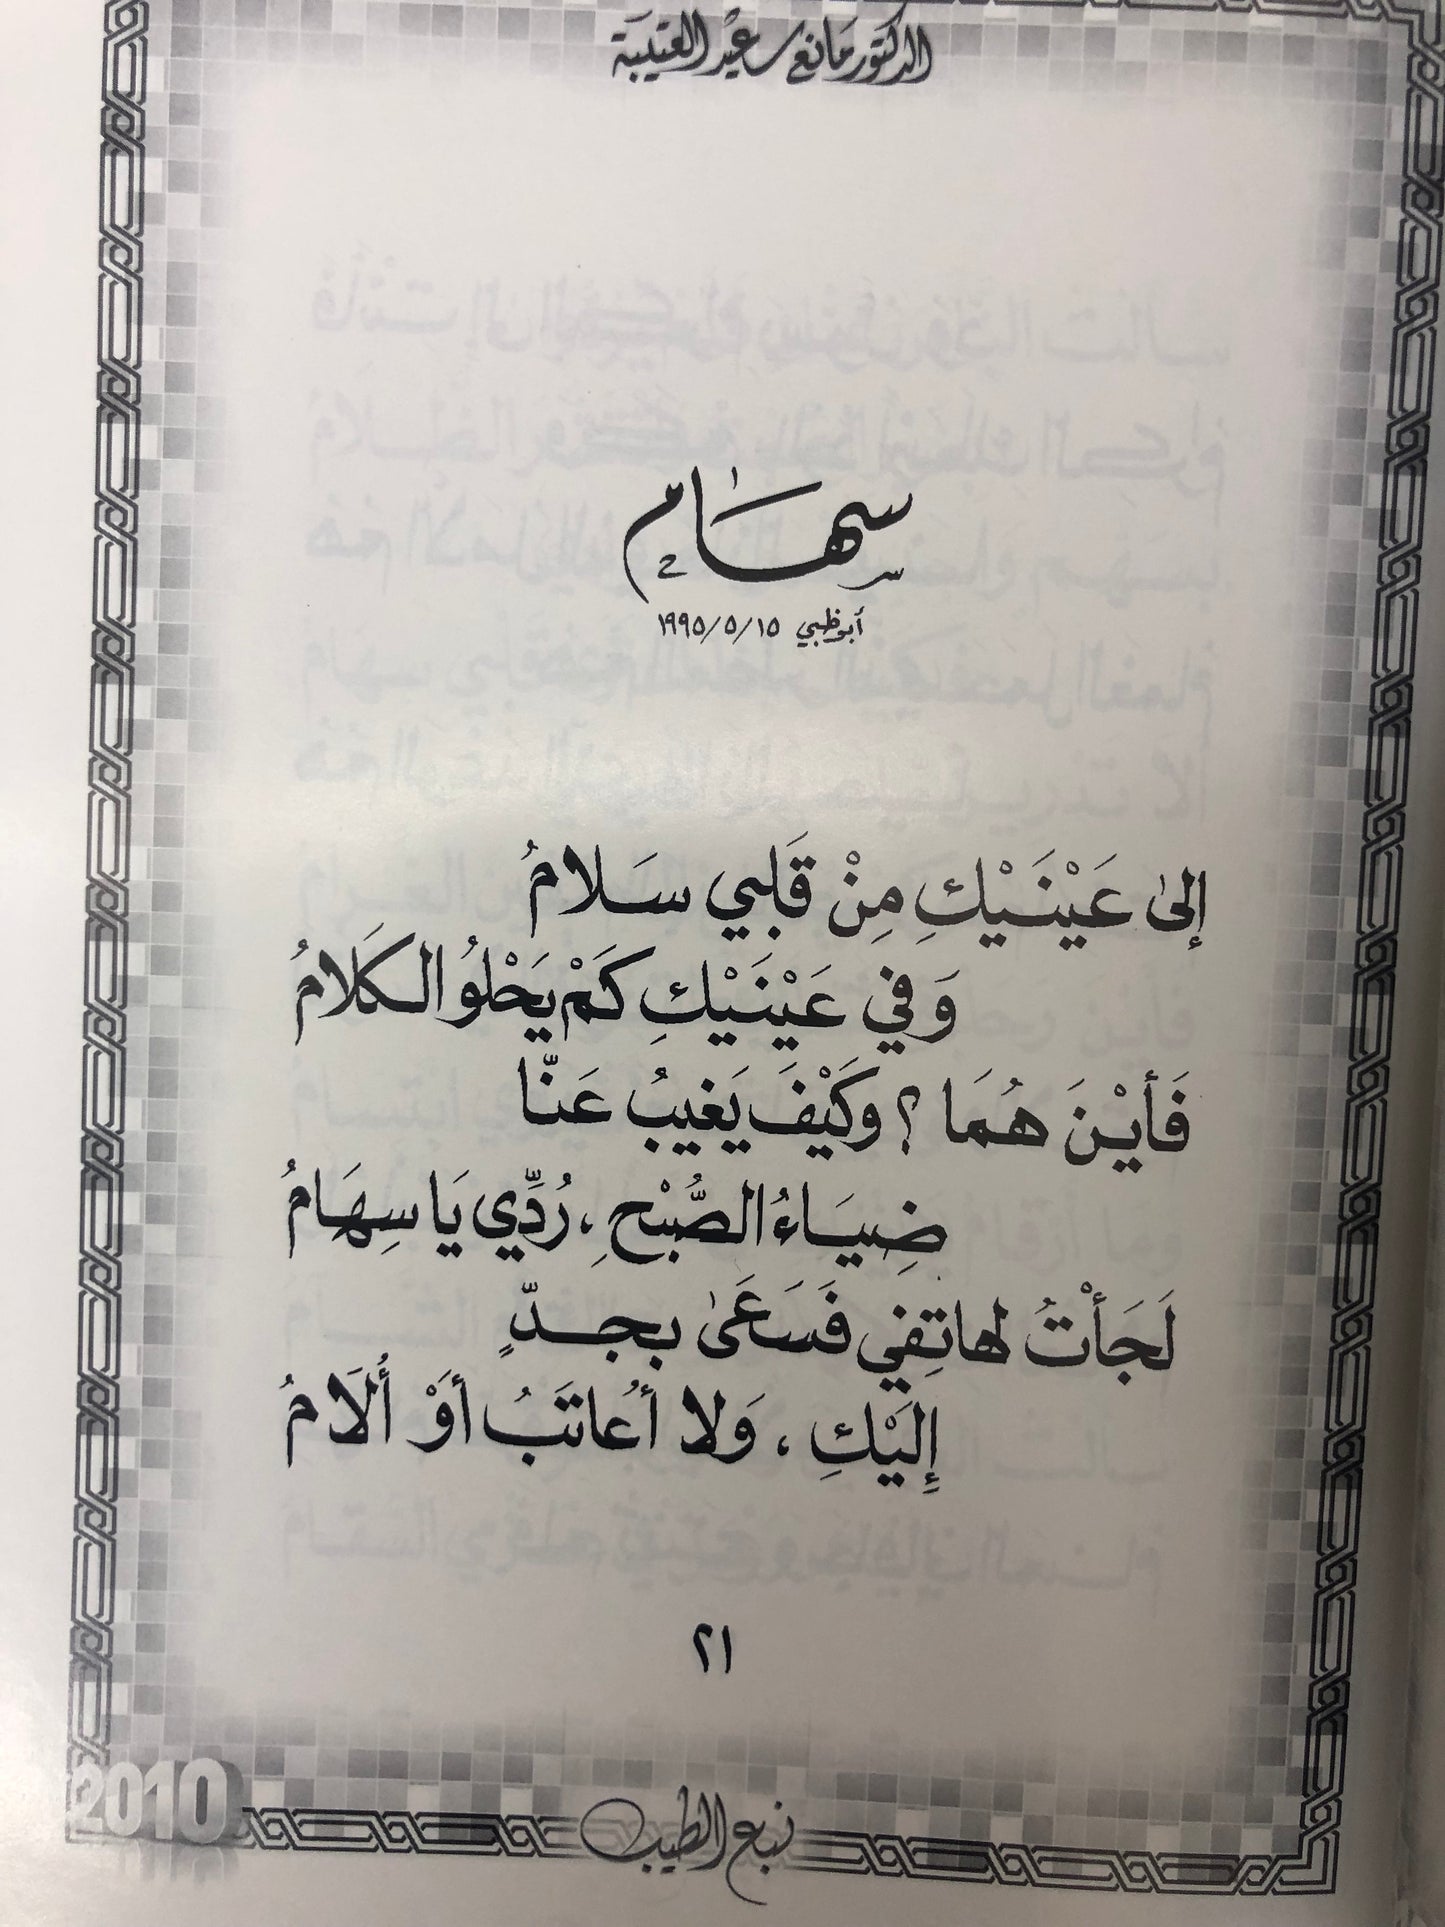 الدكتور مانع سعيد العتيبة
سهام
أبوظبي ١٥/٥/١٩٩٥
إلىٰ عَيْنَيْكِ مِنْ قَلبي سَلامُ
وَفي عَيْنَيْكِ كَمْ يَحْلوُ الكَلامُ
فَأيْنَ هُمَا ؟ وكَيْفَ يَغيبُ عَنّا
ضِيَاءُ الصُّبْحِ ، رُدِّي يَا سِهَامُ
لَجَأْتُ لهاتِفي فَسَعَىٰ بجدّ
إِلَيْكِ ، وَلا أعُاتَبُ أوَْ أُلَامُ
٢١
2010
نبع الطيب